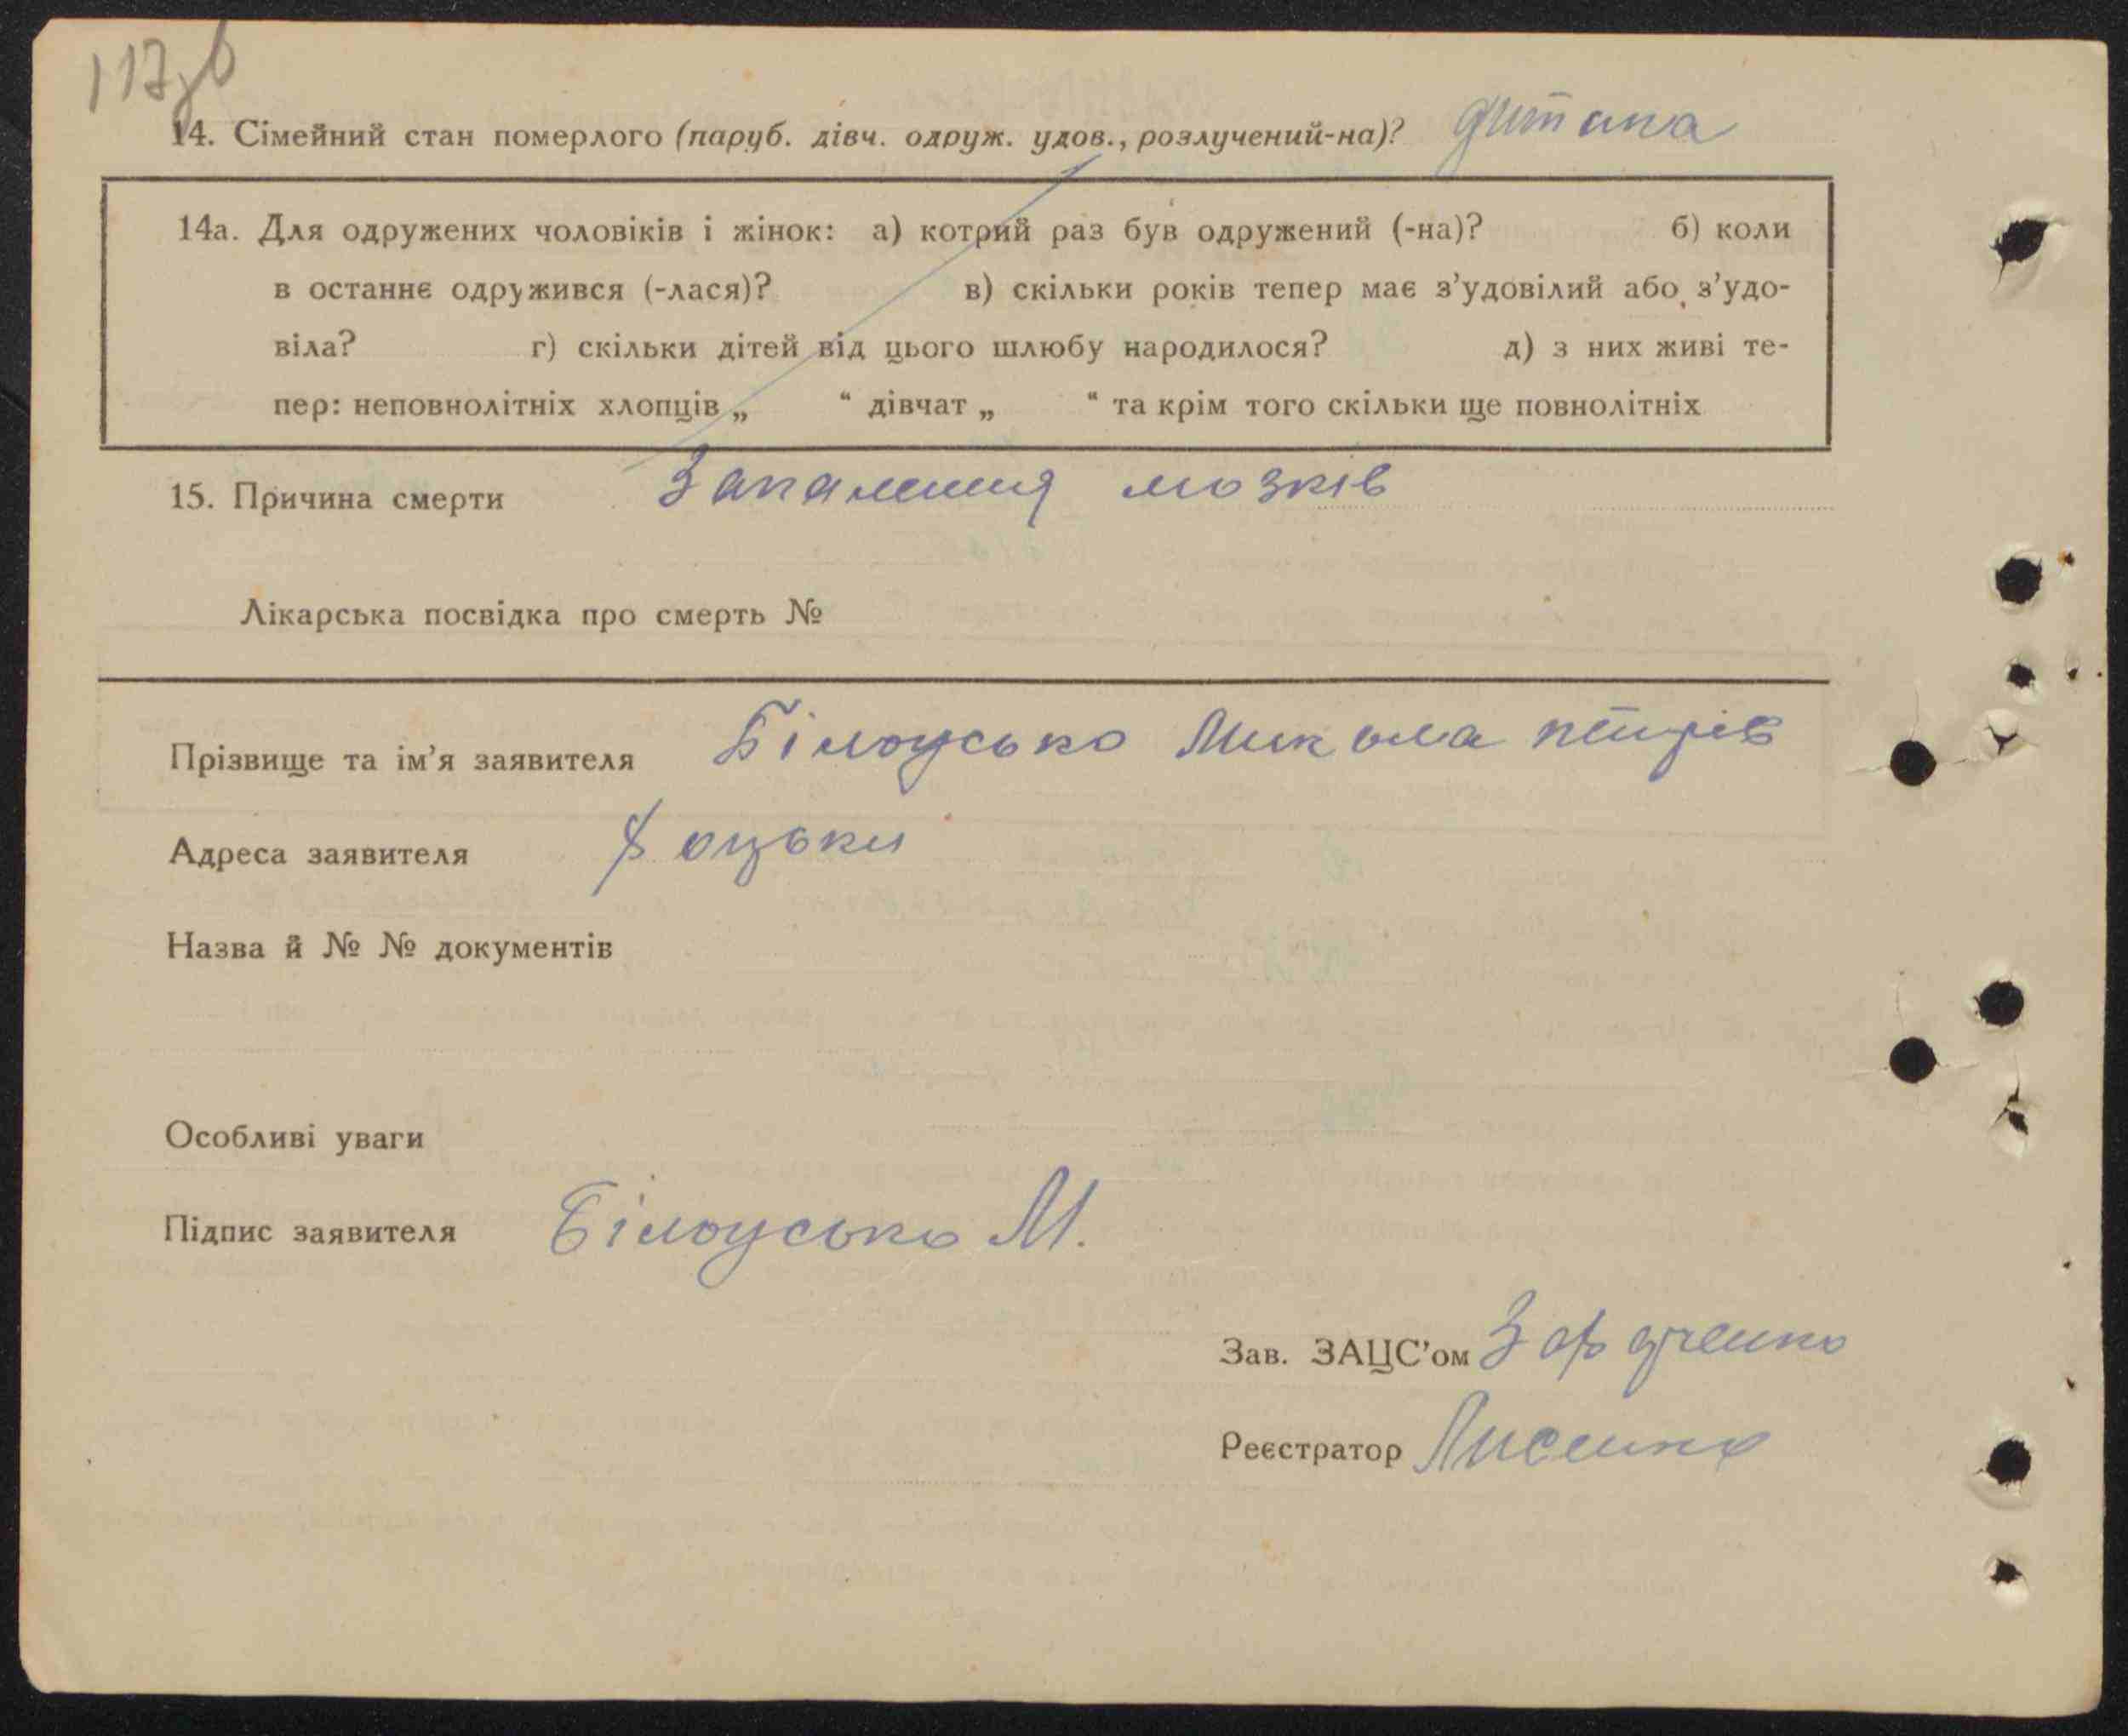 117зв
14. Сімейний стан померлого (паруб. дівч. одруж. удов., розлучений-на)? дитина
14а. Для одружених чоловіків і жінок: а) котрий раз був одружений (-на)? б) коли
в останнє одружився (-лася)? в) скільки років тепер має з'удовілий або з'удо-
віла? г) скільки дітей від цього шлюбу народилося? д) з них живі те-
пер: неповнолітніх хлопців „ “ дівчат „ “ та крім того скільки ще повнолітніх
15. Причина смерти Запалення мозків
Лікарська посвідка про смерть №
Прізвище та ім'я заявителя Білоусько Микола петрів
Адреса заявителя
Назва й № № документів
Особливі уваги
Підпис заявителя Білоусько М.
Зав. ЗАЦС'ом
Реєстратор Лисенко